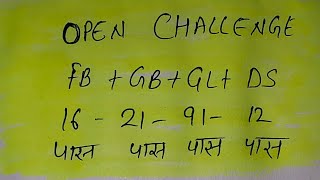 OPEN CHALLENGE
FB + GB + GL + DS
16 - 21 - 91 - 12
पास पास पास पास